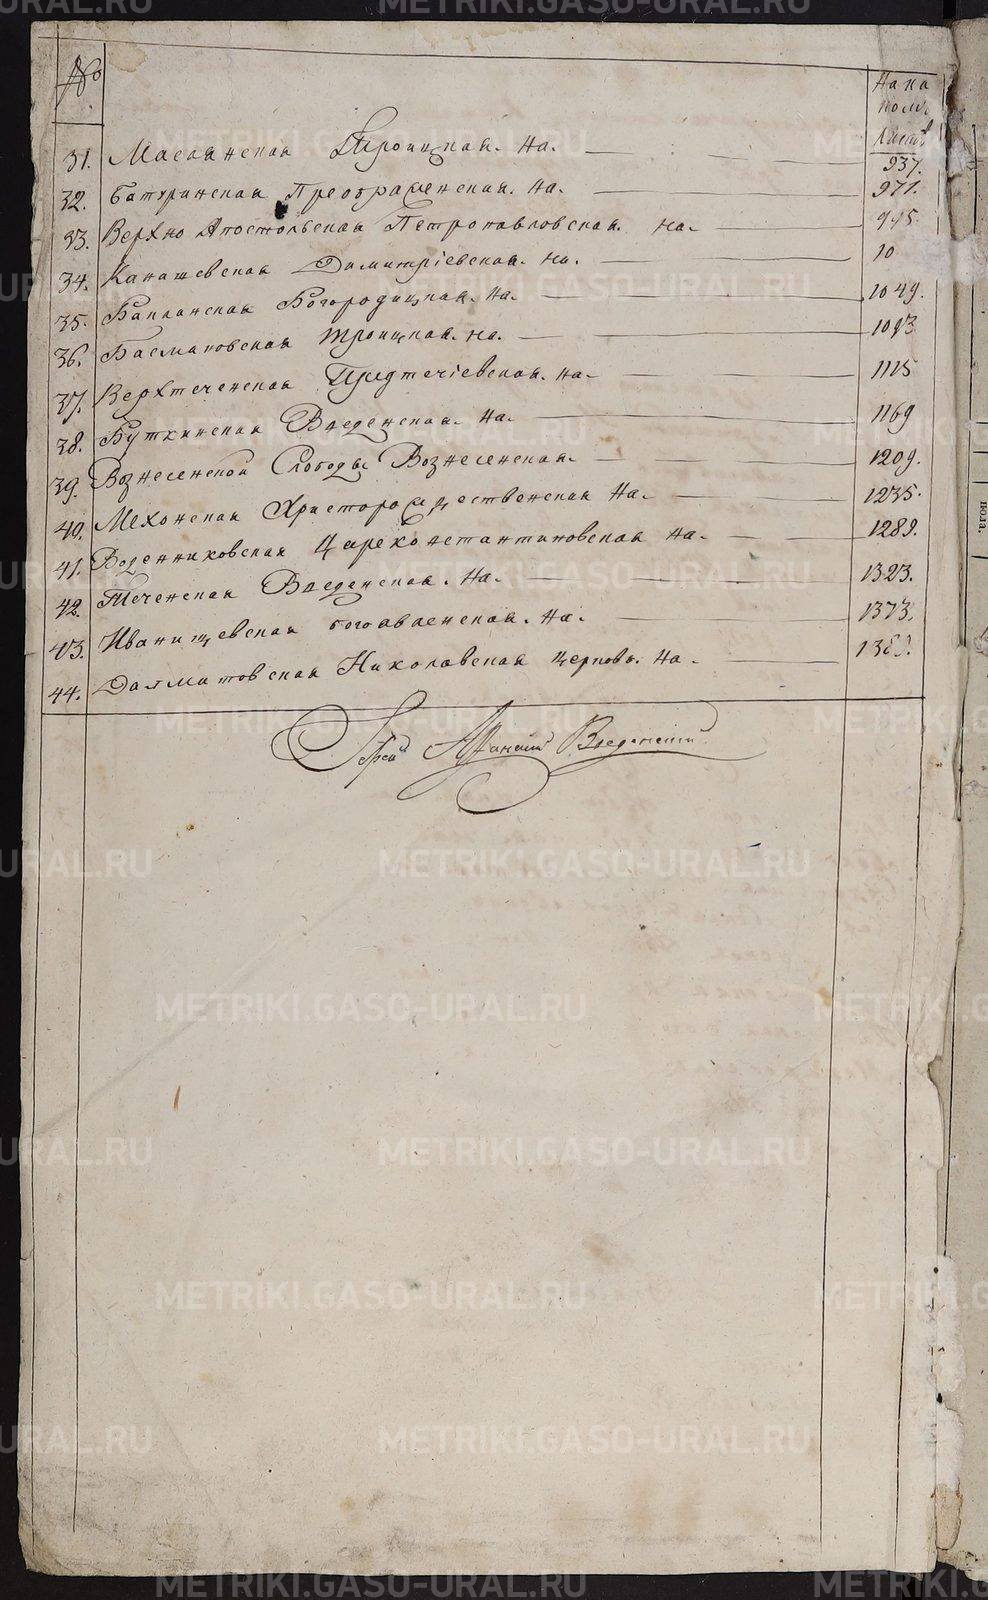 №
На ка
комъ
листѣ
31. Маслянская Троицкая. На. 937.
32. Батуринская Преображенская. На. 971.
33. Верхно Апостольская Петропавловская. На. 995.
34. Канашевская Димитріевская. На. 10
35. Бакланская Богородицкая. На. 1049.
36. Басмановская Троицкая. На. 1093
37. Верхтеченская Предтечіевская. На. 1115
38. Буткинская Введенская. На. 1169
39. Вознесенской Слободы Вознесенская. 1209.
40. Мехонская Христорождественская На. 1235.
41. Воденниковская Цареконстантиновская На. 1289.
42. Теченская Введенская. На. 1323.
43. Иванищевская богоявленская. На. 1373.
44. Далматовская Николаевская церковь. На.
Іерей Афанасій Введенскій
пола.
METRIKI.GASO-URAL.RU